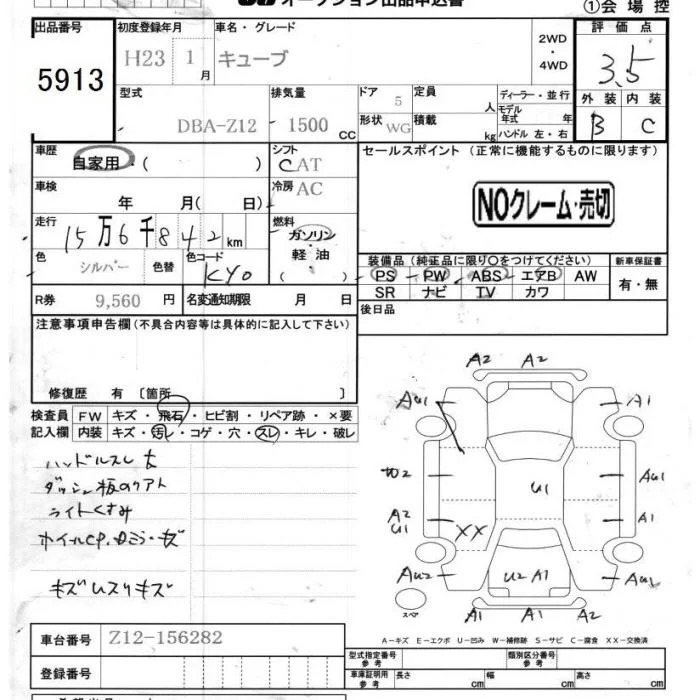 オークション出品申込書
①会場控
出品番号 初度登録年月 車名・グレード 2WD ・ 4WD 評価点
5913 H23 1月 キューブ 3.5
型式 排気量 ドア 5 定員 人 ディーラー・並行 外装 内装
DBA-Z12 1500 CC 形状 WG 積載 kg モデル年式 年 ハンドル 左・右 B C
車歴 自家用・( ) シフト CAT セールスポイント (正常に機能するものに限ります)
車検 年 月( 日) 冷房 AC NOクレーム・売切
走行 15万6千842km 燃料 ガソリン・軽油 ( )
色 シルバー 色替 色コード KY0
装備品 (純正品に限り○をつけてください) 新車保証書
PS PW ABS エアB AW 有・無
SR ナビ TV カワ
R券 9,560 円 名変通知期限 月 日 後日品
注意事項申告欄 (不具合内容等は具体的に記入して下さい)
修復歴 有 〔箇所 〕
検査員 FW キズ・飛石・ヒビ割・リペア跡・×要
記入欄 内装 キズ・汚レ・コゲ・穴・スレ・キレ・破レ
ハンドルスレ大
ダッシュ板のリアト
ライトくすみ
キズ
A2 A2
AU1 A1
W2 U1 AU1
A2 U1 XX A1
AU2 U2 A1 AU1
A1 A1 A2
スペア
A-キズ E-エクボ U-凹み W-補修跡 S-サビ C-腐食 XX-交換済
車台番号 Z12-156282
登録番号
型式指定番号 参考 類別区分番号 参考
車庫証明用 参考 長さ cm 幅 cm 高さ cm